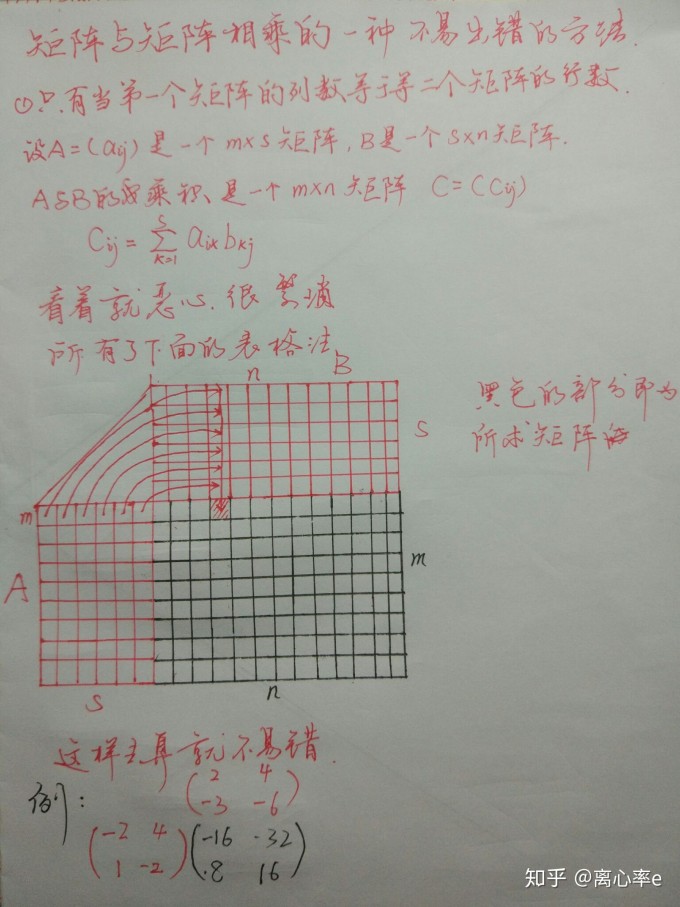 矩阵与矩阵相乘的一种不易出错的方法.
①只有当第一个矩阵的列数等于第二个矩阵的行数.
设A=(aij)是一个m×s矩阵,B是一个s×n矩阵.
A与B的乘积是一个m×n矩阵 C=(Cij)
Cij=∑k=1 s aikbkj
看着就恶心.很繁琐
所有了下面的表格法
n B
黑色的部分即为
S
所求矩阵
m
m
A
S
n
这样去算就不易错.
例: (2 4
-3 -6)
(-2 4 (-16 -32
1 -2) 8 16)
知乎 @离心率e